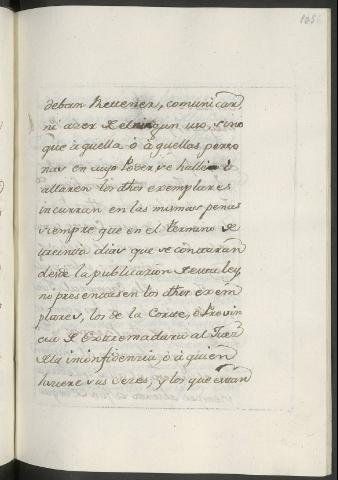 deban Retener, comunicar,
ni azer de el ningun uso, sino
que àquella ò àquellas perso
nas en cuyo Poder se hallàn ò
allaren los dhos exemplares
incurran en las mismas penas
siempre que en el termino de
treinta dias que se contaran
desde la publicacion de esta ley
no presentasen los dhos exem
plares, los de la Corte, ò Provin
cia de Extremadura al Juez
de la inconfidencia, ò à quien
huviere sus veces, y los que estan